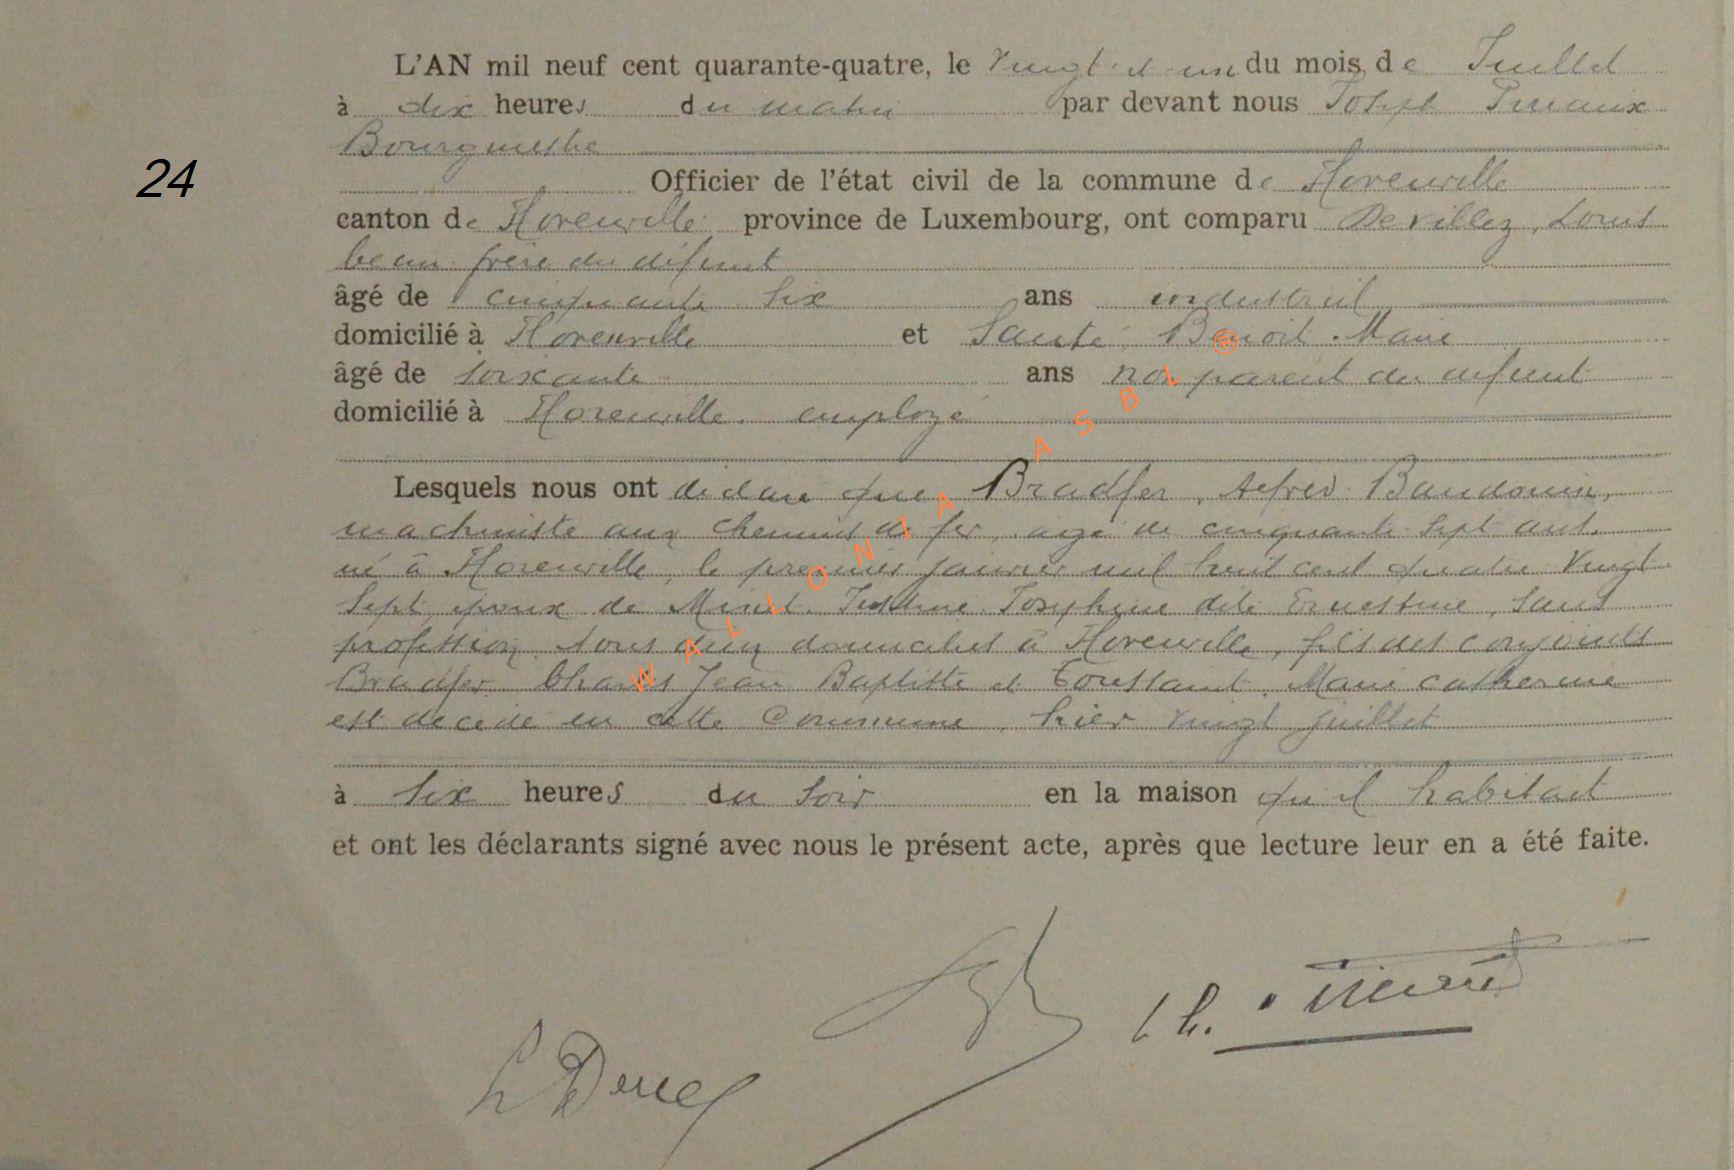 L'AN mil neuf cent quarante-quatre, le Vingt et un du mois de Juillet
à dix heures du matin par devant nous Joseph
Bourgmestre
24
Officier de l'état civil de la commune de Horenville
canton de Horenville province de Luxembourg, ont comparu Devillez, Louis
beau frère du défunt
âgé de cinquante six ans industriel
domicilié à Horenville et Benoit Marie
âgé de soixante ans non parent du défunt
domicilié à Horenville employé
Lesquels nous ont déclaré que Bradfer, Alfred Baudouin,
machiniste aux chemins de fer, agé de cinquante sept ans,
né à Horenville, le premier janvier mil huit cent quatre Vingt
sept, époux de Minet Joséphine dite Ernestine, sans
profession, tous deux domiciliés à Horenville, fils des conjoints
Bradfer Charles Jean Baptiste et Toussaint, Marie Catherine
est décédé en cette Commune, hier vingt juillet
à six heures du soir en la maison qu'il habitait
et ont les déclarants signé avec nous le présent acte, après que lecture leur en a été faite.
WALLONIA ASBL ®